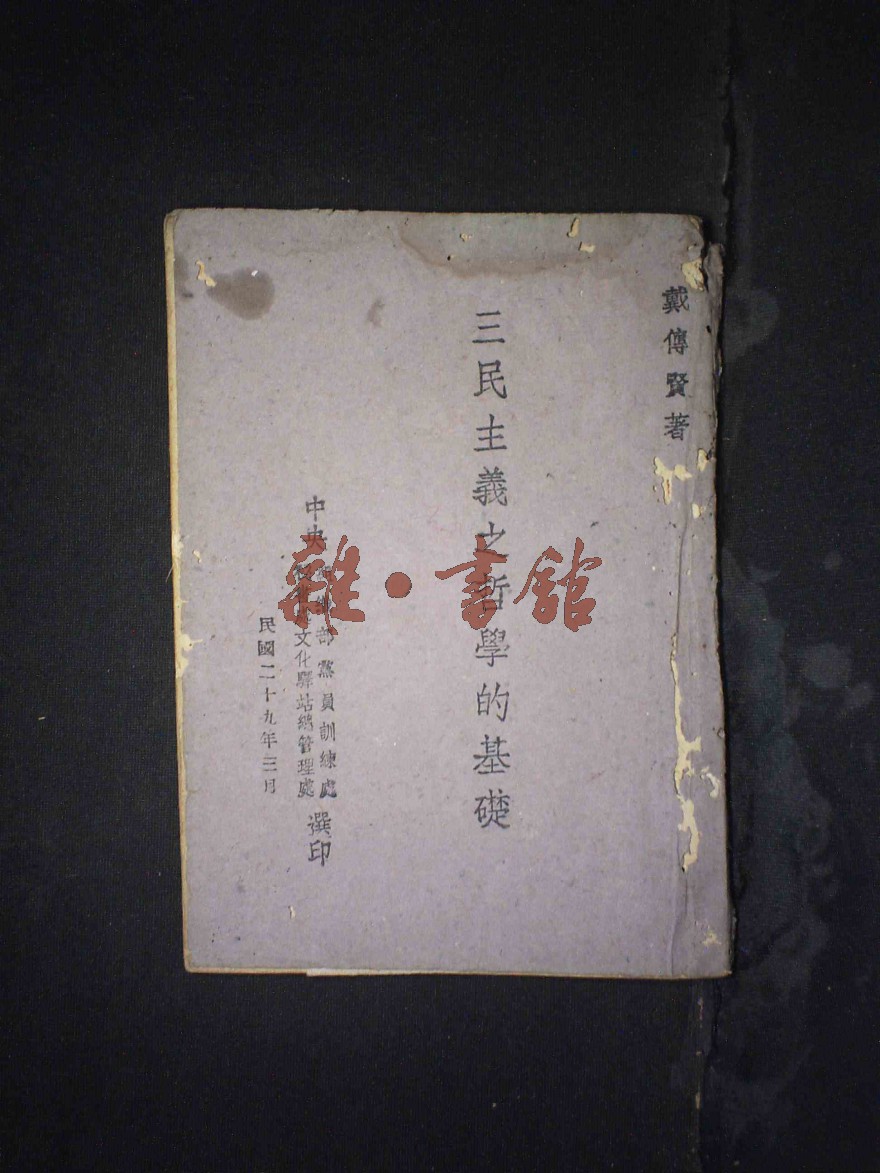 戴傳賢著
三民主義之哲學的基礎
中央
部黨員訓練處
文化驛站總管理處
選印
民國二十九年三月
雜·書館